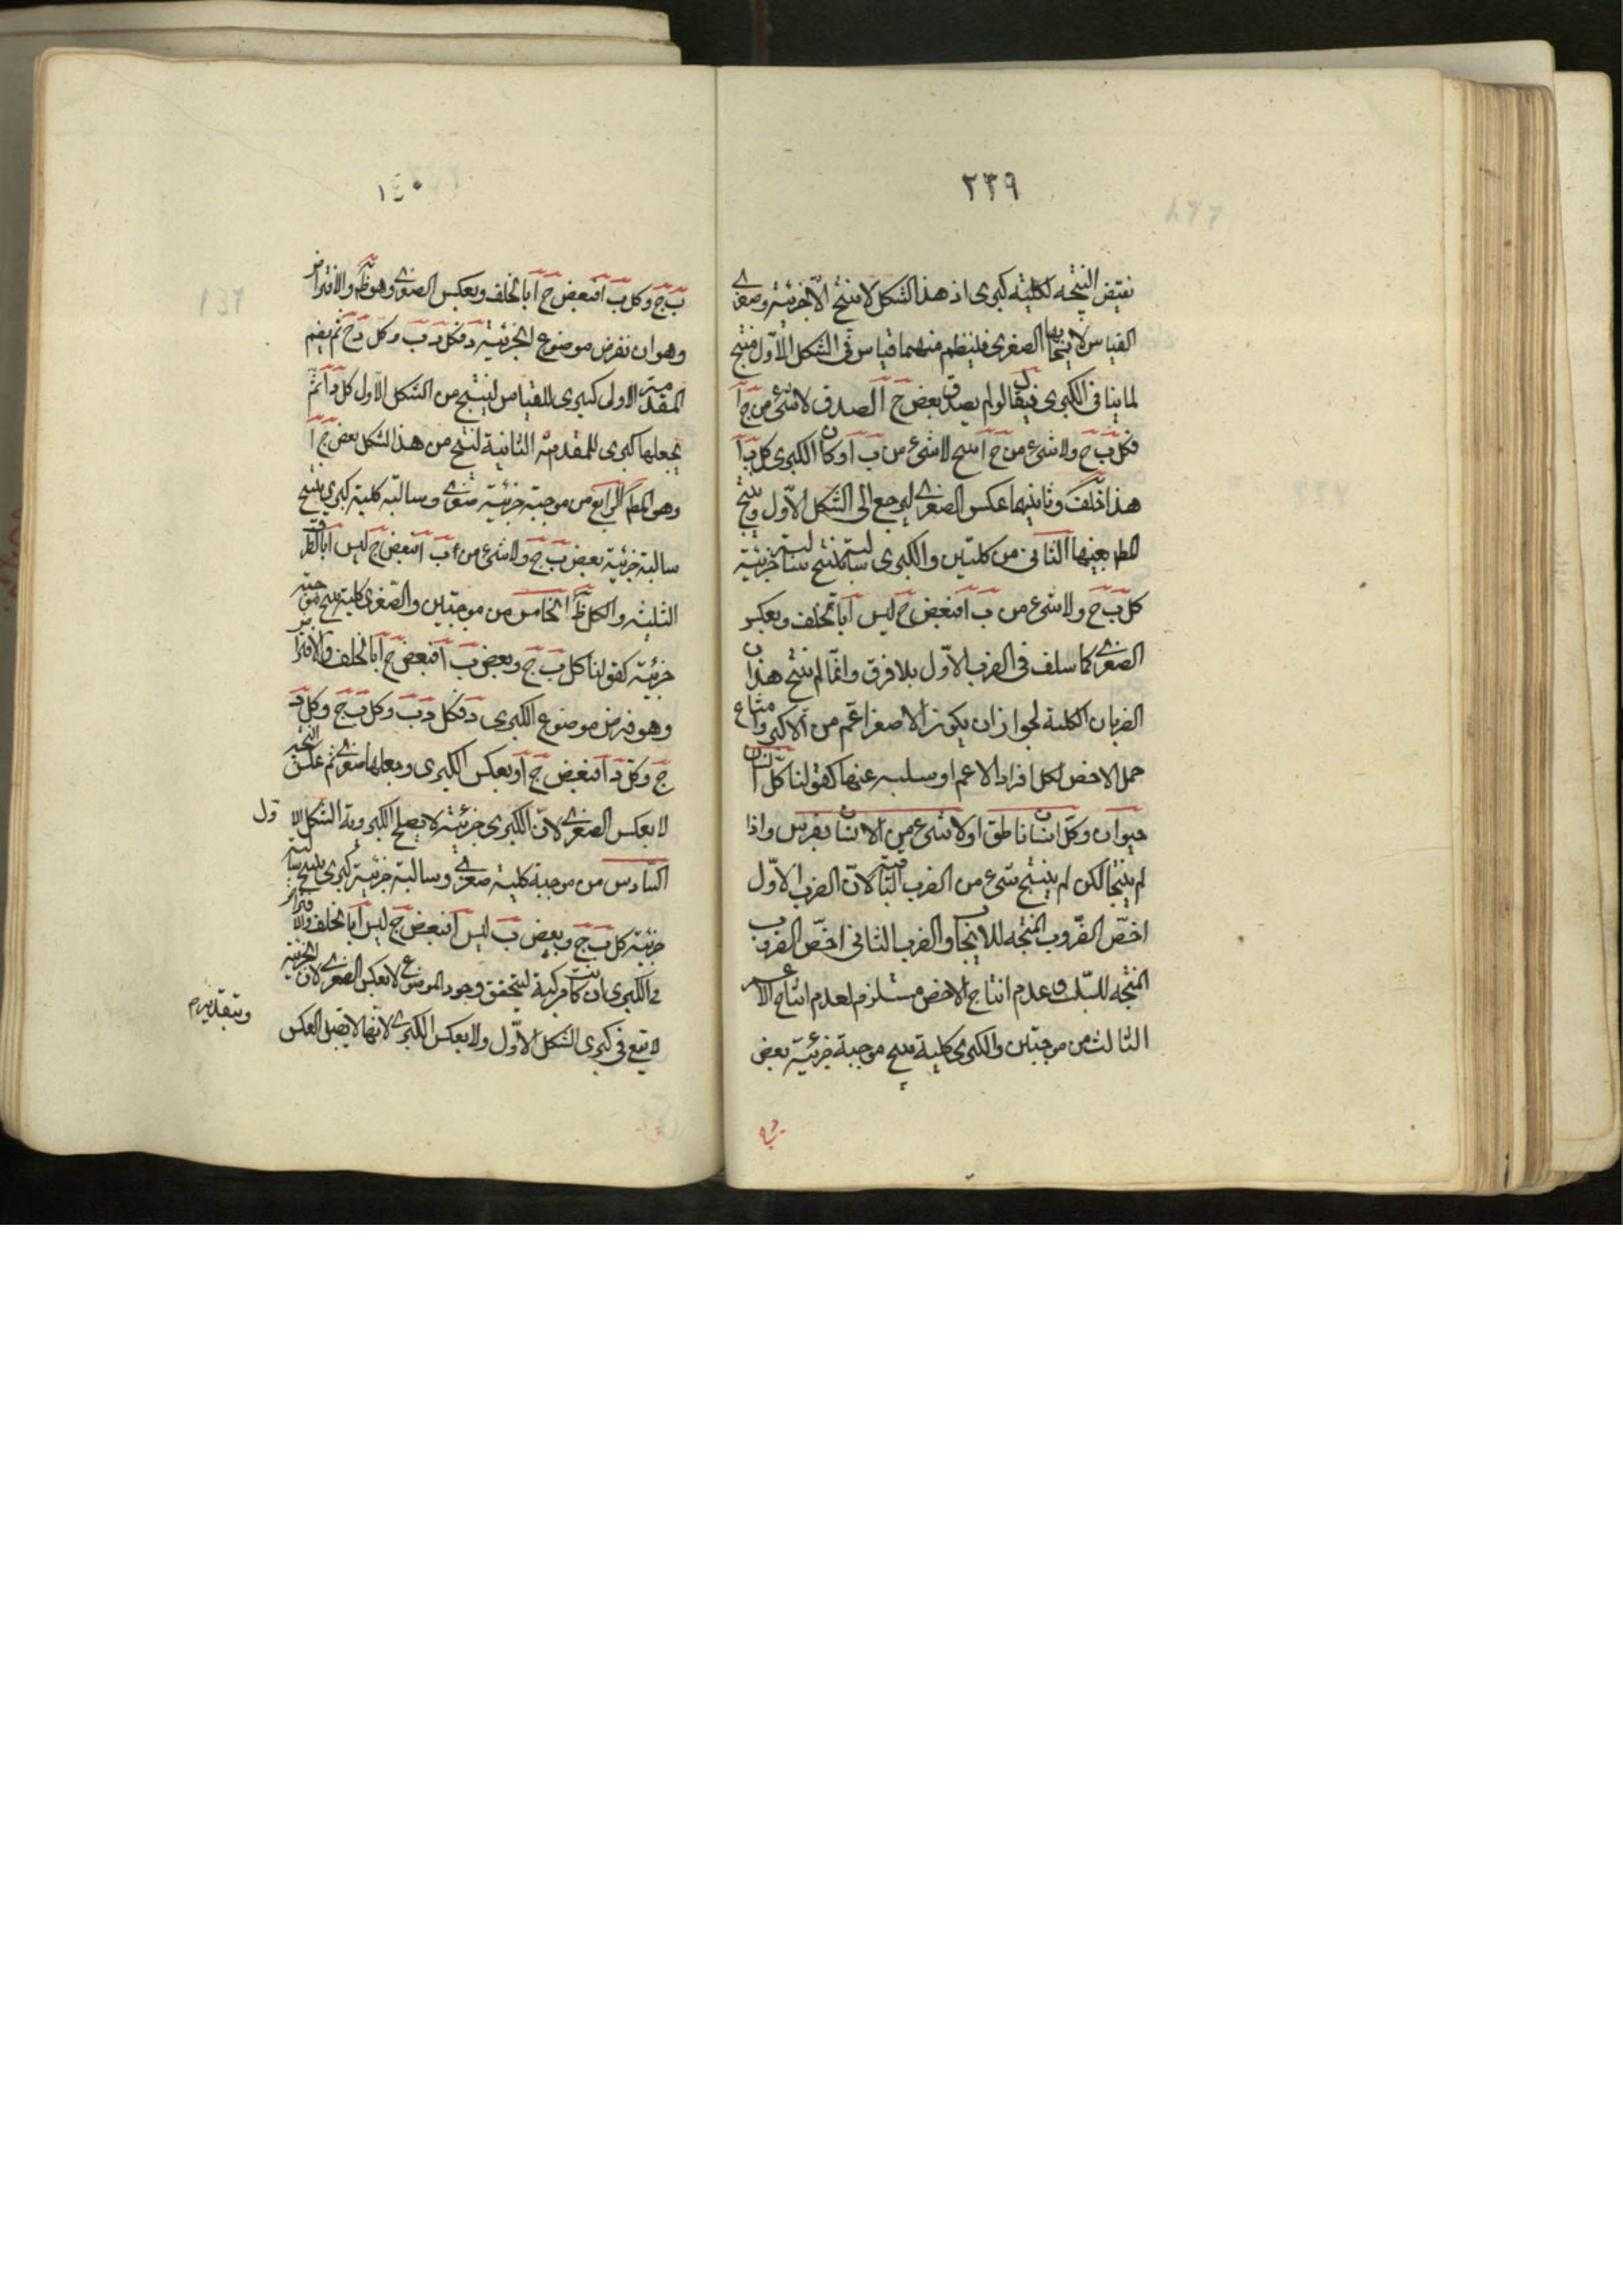 ٢٣٩
نقيض النتيجه لكليته كبرى اذ هذا الشكل لا ينتج الا جزئية وصغرى
القياس لايجابها الصغرى فلينظم منهما قياس فى الشكل الاول منتج
لما ينافى الكبرى فيقال لو لم يصدق بعض ج ا لصدق لا شئ من ج ا
فكل ب ج ولا شئ من ج ا ينتج لا شئ من ب ا وكان الكبرى كل ب ا
هذا خلف وثانيها عكس الصغرى ليرجع الى الشكل الاول وينتج
المط بعينها الثانى من كليتين والكبرى سالبة ينتج سالبة جزئية
كل ب ج ولا شئ من ب ا فبعض ج ليس ا بالخلف وبعكس
الصغرى كما سلف فى الضرب الاول بلا فرق وانما لم ينتج هذان
الضربان الكلية لجواز ان يكون الاصغر اعم من الاكبر وامتناع
حمل الاخص لكل افراد الاعم او سلبه عنها كقولنا كل انسان
حيوان وكل انسان ناطق او لا شئ من الانسان بفرس واذا
لم ينتجا لكن لم ينتج شئ من الضرب الباقية لان الضرب الاول
اخص الضروب المنتجه للايجاب والضرب الثانى اخص الضروب
المنتجه للسلب وعدم انتاج الاخص مستلزم لعدم انتاج الاعم
الثالث من موجبتين والكبرى كلية ينتج موجبة جزئية بعض
١٤٠
ب ج وكل ب ا فبعض ج ا بالخلف وبعكس الصغرى وهو ظ والافتراض
وهو ان نفرض موضوع الجزئية د فكل د ب وكل د ج ثم يضم
المقدمة الاولى كبرى للقياس لينتج من الشكل الاول كل د ا ثم
يجعلها كبرى للمقدمة الثانية لينتج من هذا الشكل بعض ج ا
وهو المط الرابع من موجبة جزئية صغرى وسالبة كلية كبرى ينتج
سالبة جزئية بعض ب ج ولا شئ من ب ا فبعض ج ليس ا بالطرق
الثلثه والكل ظ الخامس من موجبتين والصغرى كلية ينتج موجبة
جزئية كقولنا كل ب ج وبعض ب ا فبعض ج ا بالخلف والافتراض
وهو فرض موضوع الكبرى د فكل د ب وكل ب ج وكل د
ج وكل د ا فبعض ج ا وبعكس الكبرى وجعلها صغرى ثم عكس النتيجة
لا بعكس الصغرى لان الكبرى جزئية لا يصلح لكبروية الشكل الاول
السادس من موجبة كلية صغرى وسالبة جزئية كبرى ينتج سالبة
جزئية كل ب ج وبعض ب ليس ا فبعض ج ليس ا بالخلف والافتراض
فى الكبرى ان كانت مركبة ليتحقق وجود الموضوع لا بعكس الصغرى لان الجزئية
لا يقع فى كبرى الشكل الاول ولا بعكس الكبرى لانها لا يقبل العكس
وبتقديرم